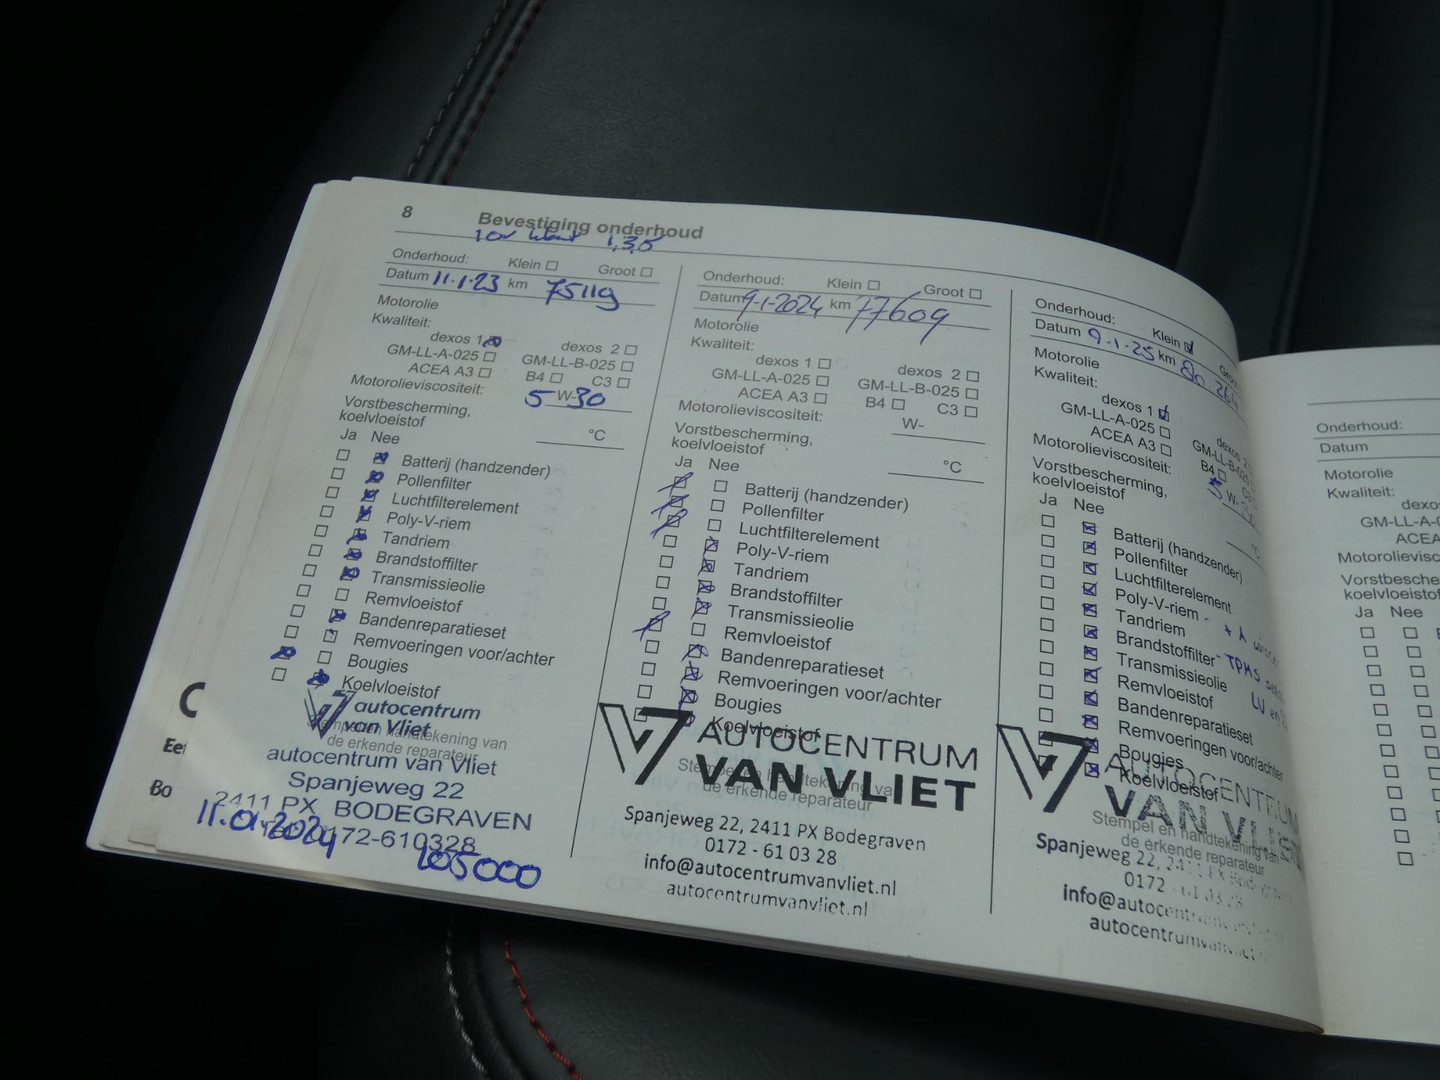 8 Bevestiging onderhoud
1,3,5
Onderhoud: Klein Groot
Datum 11-1-23 km 75119
Motorolie
Kwaliteit:
dexos 1 dexos 2
GM-LL-A-025 GM-LL-B-025
ACEA A3 B4 C3
Motorolieviscositeit: 5 W-30
Vorstbescherming,
koelvloeistof °C
Ja Nee
Batterij (handzender)
Pollenfilter
Luchtfilterelement
Poly-V-riem
Tandriem
Brandstoffilter
Transmissieolie
Remvloeistof
Bandenreparatieset
Remvoeringen voor/achter
Bougies
Koelvloeistof
autocentrum
van Vliet
Stempel en handtekening van
de erkende reparateur
autocentrum van Vliet
Spanjeweg 22
2411 PX BODEGRAVEN
0172-610328
11.01.2024
105000
Onderhoud: Klein Groot
Datum 9-1-2024 km 77609
Motorolie
Kwaliteit:
dexos 1 dexos 2
GM-LL-A-025 GM-LL-B-025
ACEA A3 B4 C3
Motorolieviscositeit: W-
Vorstbescherming,
koelvloeistof °C
Ja Nee
Batterij (handzender)
Pollenfilter
Luchtfilterelement
Poly-V-riem
Tandriem
Brandstoffilter
Transmissieolie
Remvloeistof
Bandenreparatieset
Remvoeringen voor/achter
Bougies
Koelvloeistof
AUTOCENTRUM
VAN VLIET
Stempel en handtekening van
de erkende reparateur
Spanjeweg 22, 2411 PX Bodegraven
0172 - 61 03 28
info@autocentrumvanvliet.nl
autocentrumvanvliet.nl
Onderhoud: Klein
Datum 9-1-25 km 80.264
Motorolie
Kwaliteit:
dexos 1 dexos 2
GM-LL-A-025 GM-LL-B-025
ACEA A3 B4
Motorolieviscositeit: 5 W-
Vorstbescherming,
koelvloeistof °C
Ja Nee
Batterij (handzender)
Pollenfilter
Luchtfilterelement
Poly-V-riem
Tandriem
Brandstoffilter - TPMS
Transmissieolie
Remvloeistof
Bandenreparatieset
Remvoeringen voor/achter
Bougies
Koelvloeistof
AUTOCENTRUM
VAN VLIET
Stempel en handtekening van
de erkende reparateur
Spanjeweg 22, 2411 PX
0172 - 61 03 28
Onderhoud:
Datum
Motorolie
Kwaliteit:
Ja Nee